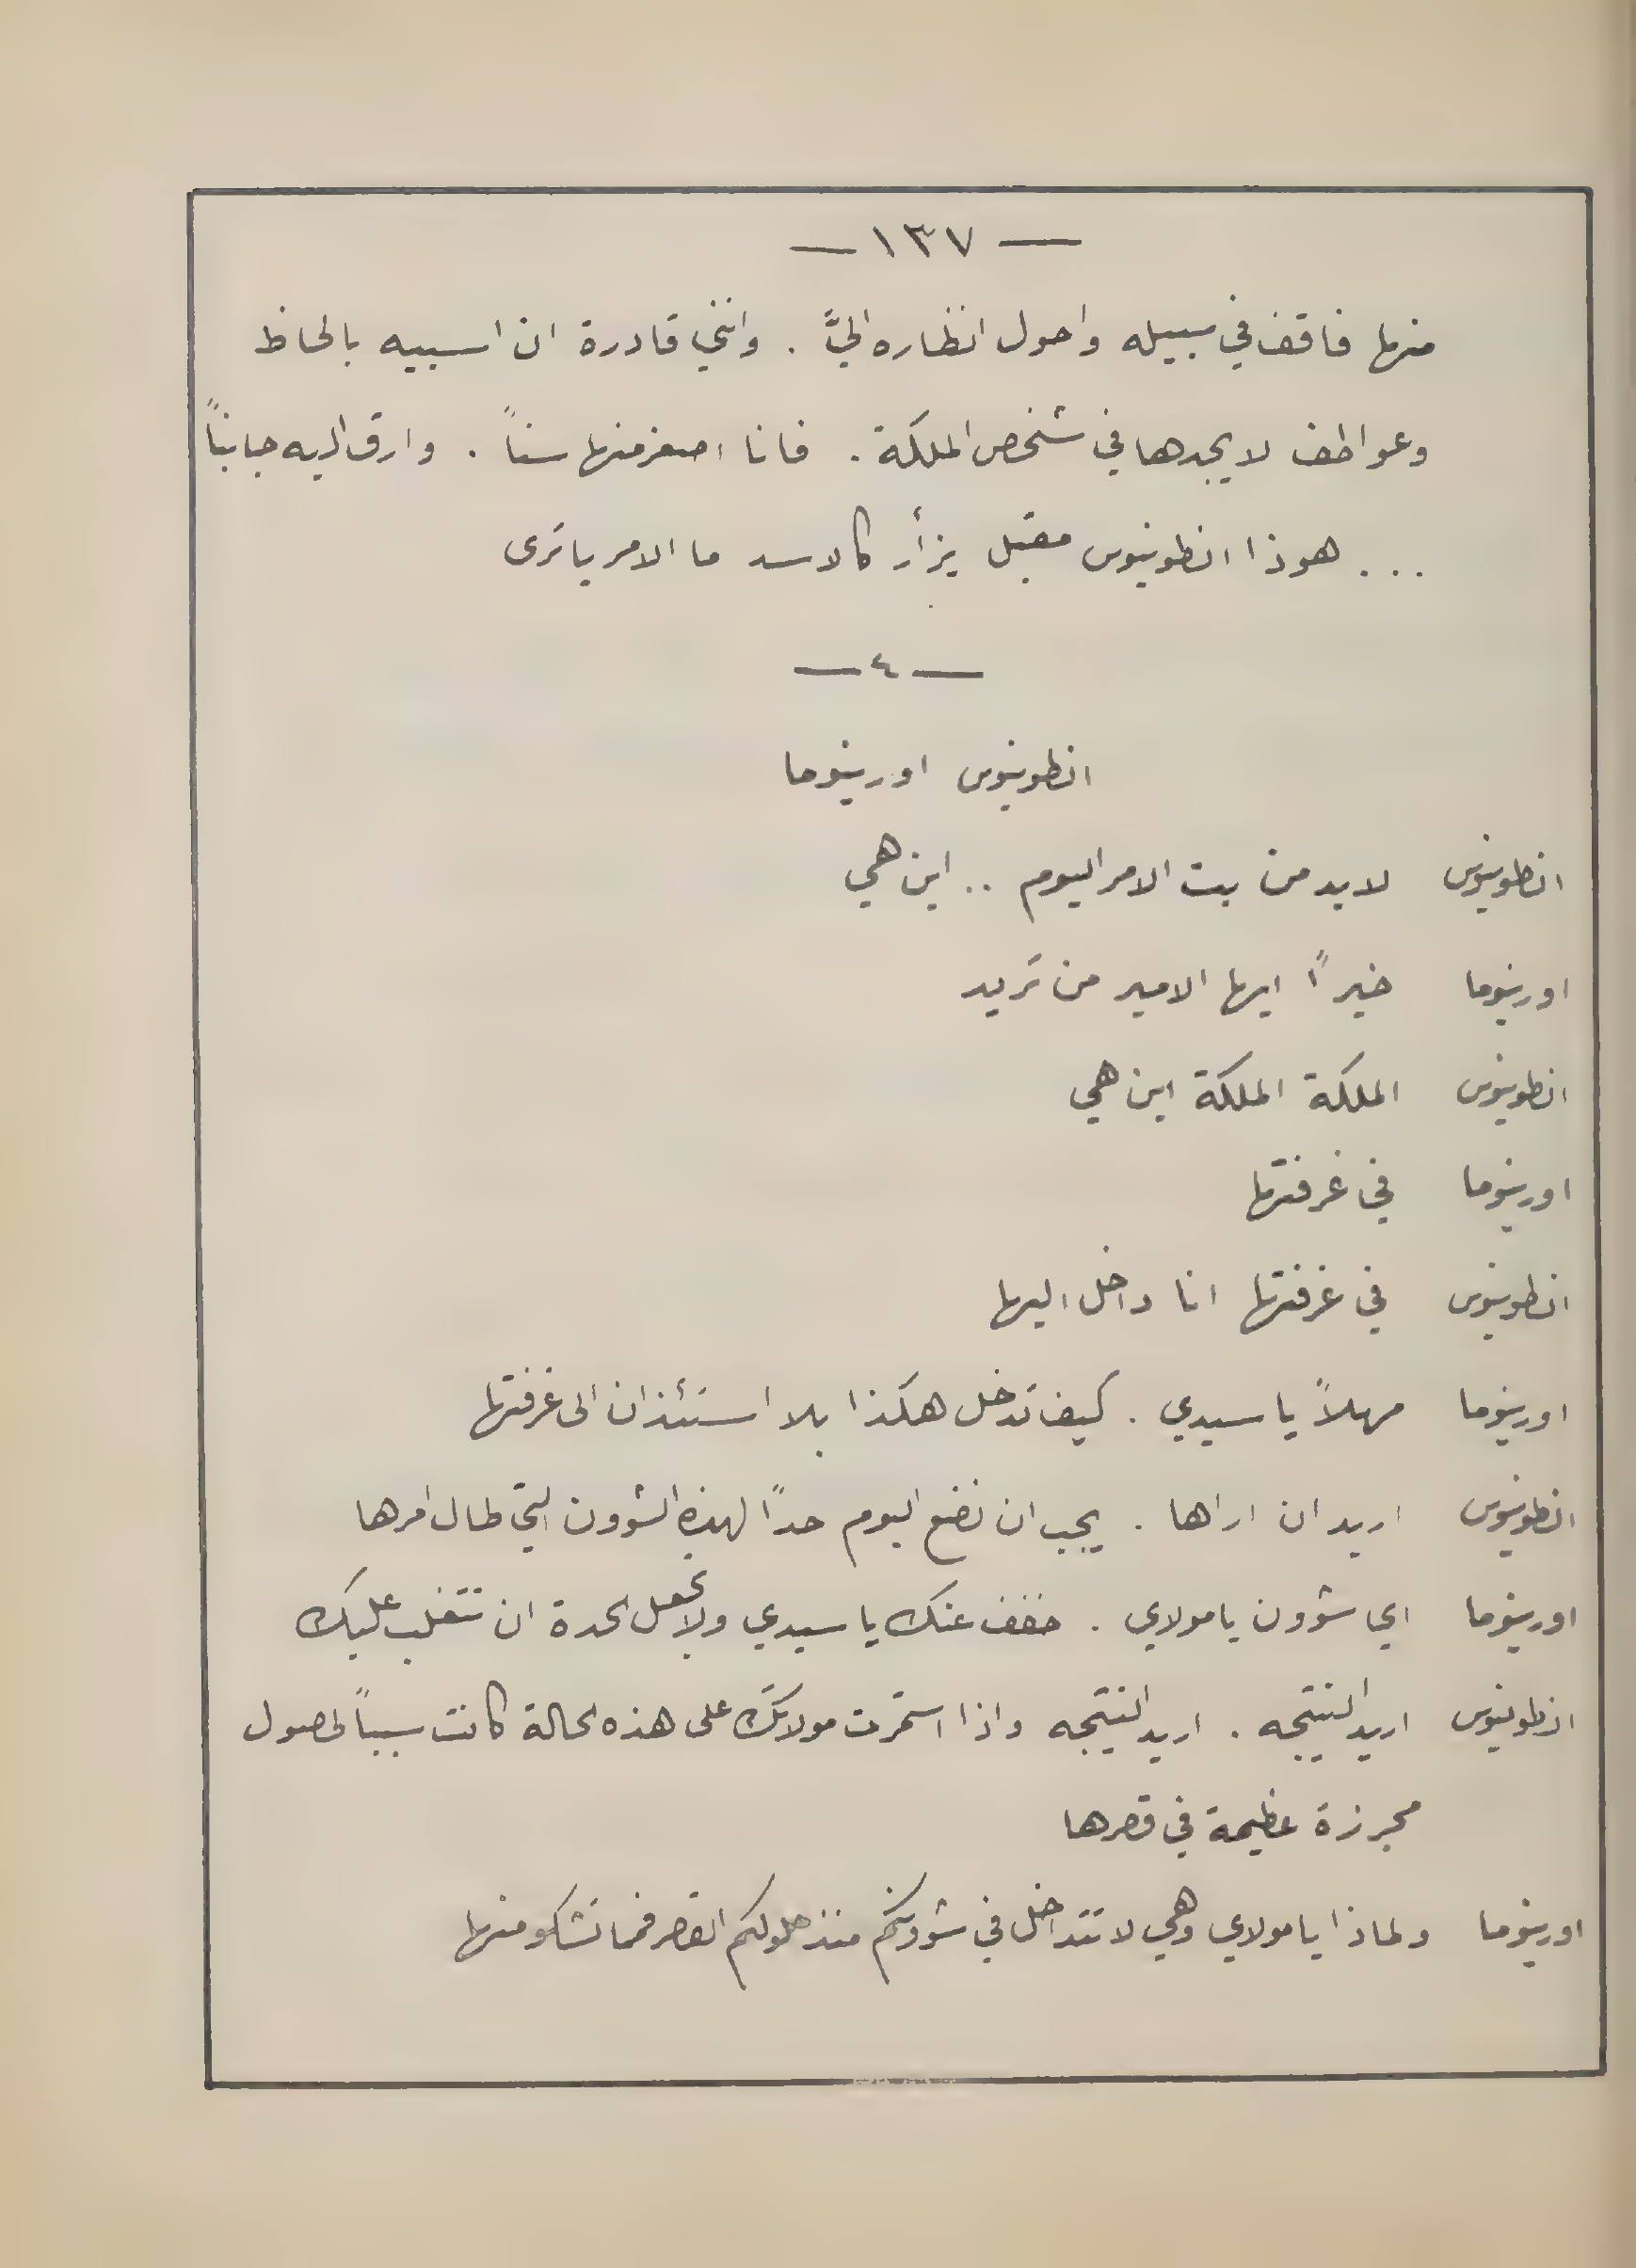 — ١٣٧ —
منها فاقف في سبيله واحول انظاره اليَّ . وانني قادرة ان اسبيه بالحاظ
وعواطف لا يجدها في شخص الملكة . فانا اصغر منها سناً . وارق اليه جانباً
... هوذا انطونيوس مقبل يزأر كالاسد ما الامر يا ترى
— ٤ —
انطونيوس اورينوما
انطونيوس لا بد من بت الامر اليوم .. اين هي
اورينوما خيراً ايها الامير من تريد
انطونيوس الملكة الملكة اين هي
اورينوما في غرفتها
انطونيوس في غرفتها انا داخل اليها
اورينوما مهلاً يا سيدي . كيف تدخل هكذا بلا استئذان الى غرفتها
انطونيوس اريد ان اراها . يجب ان نضع اليوم حداً لهذه الشؤون التي طال امرها
اورينوما اي شؤون يا مولاي . خفف عنك يا سيدي ولا تجعل الحدة ان تتغلب عليك
انطونيوس اريد النتيجه . اريد النتيجه واذا استمرت مولاتك على هذه الحالة كانت سبباً لحصول
مجزرة عظيمة في قصرها
اورينوما ولماذا يا مولاي وهي لا تتداخل في شؤونكم منذ حلولكم القصر فما تشكو منها